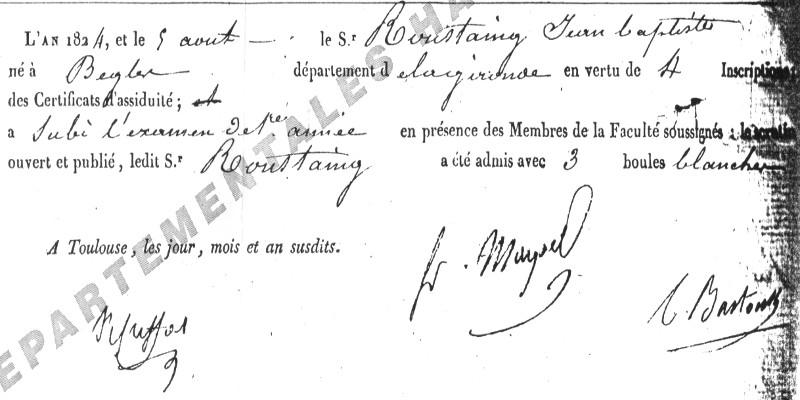 L'AN 1824, et le 5 aout — le S.r Roustaing Jean baptiste
né à Begles département d elagironde en vertu de 4 Inscriptions
des Certificats d'assiduité ; et
a subi l'examen de 1re année en présence des Membres de la Faculté soussignés ; le scrutin
ouvert et publié, ledit S.r Roustaing a été admis avec 3 boules blanches
A Toulouse, les jour, mois et an susdits.
EPARTEMENTALES HA